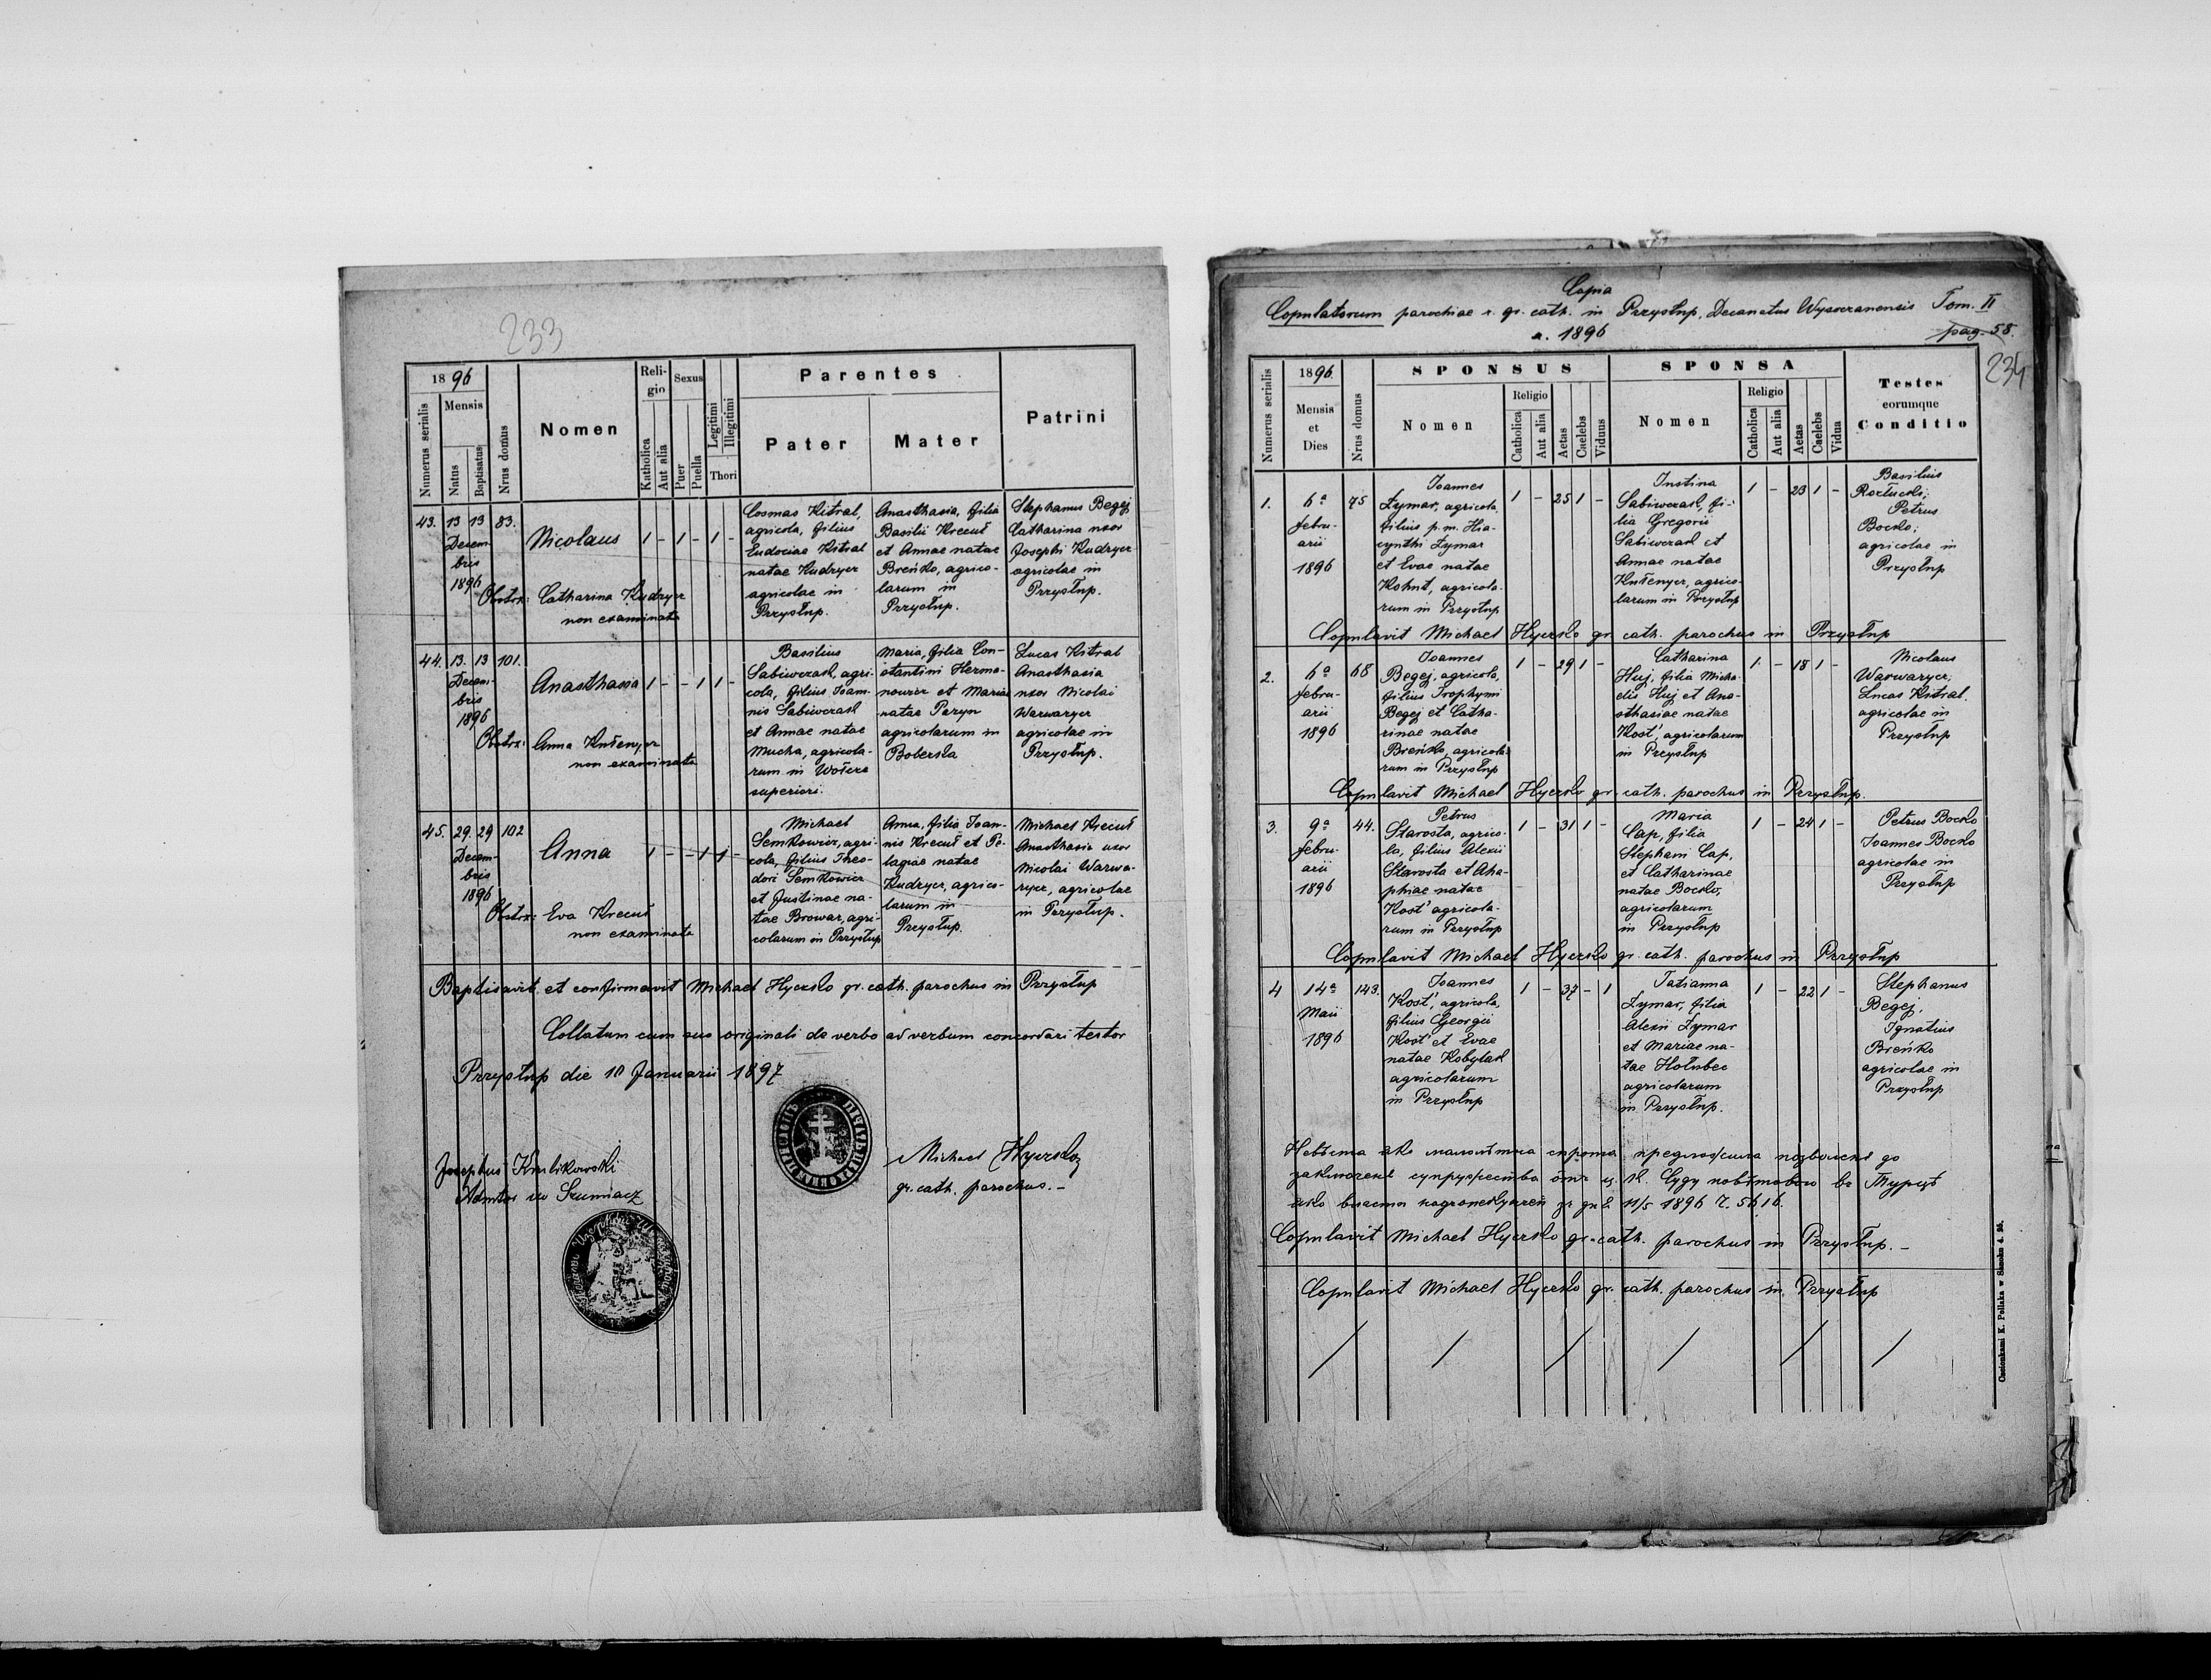 233
1896
Numerus serialis
Mensis
Natus
Baptisatus
Nrus domus
Nomen
Religio
Katholica
Aut alia
Sexus
Puer
Puella
Legitimi
Illegitimi
Thori
Parentes
Pater
Mater
Patrini
43. 13 13 83.
Decem-
bris
1896
Nicolaus 1 - 1 - 1 -
Obstrx: Catharina Kudryer
non examinata
Cosmas Kitral,
agricola, filius
Eudociae Kitral
natae Kudryer
agricolae in
Przysłup.
Anasthasia, filia
Basilii Krecuł
et Annae natae
Breńko, agrico-
larum in
Przysłup.
Stephanus Begej
Catharina uxor
Josephi Kudryer
agricolae in
Przysłup.
44. 13. 13 101.
Decem-
bris
1896
Anasthasia 1 - - 1 1 -
Obstrx: Anna
non examinata
Basilius
Sabiwczak, agri-
cola, filius Ioan-
nis Sabiwczak
et Annae natae
Mucha, agricola-
rum in Wołcze
superiori.
Maria, filia Con-
stantini Hermo-
nowicz et Mariae
natae Pazyn
agricolarum in
Boberka
Lucas Kitral
Anasthasia
uxor Nicolai
Warwaryer
agricolae in
Przysłup.
45. 29. 29 102
Decem-
bris
1896
Anna 1 - - 1 1 -
Obstrx: Eva Krecuł
non examinata
Michael
Semkowicz, agri-
cola, filius Theo-
dori Semkowicz
et Justinae na-
tae Browar, agri-
colarum in Przysłup
Anna, filia Ioan-
nis Krecuł et Pe-
lagiae natae
Kudryer, agrico-
larum in
Przysłup.
Michael Krecuł
Anasthasia uxor
Nicolai Warwa-
ryer, agricolae
in Przysłup.
Baptisavit et confirmavit Michael Hyczko gr. cath. parochus in Przysłup
Collatum cum suo originali de verbo ad verbum concordari testor
Przysłup die 10 Januarii 1897
Josephus Kmlikowski
Admtor in Szumiacz
Michael Hyczko
gr. cath. parochus.-
Copia
Copulatorum parochiae r. gr. cath. in Przysłup, Decanatus Wysoczanensis Tom. II
a. 1896
pag. 58.
234
Numerus serialis
1896.
Mensis
et
Dies
Nrus domus
SPONSUS
Nomen
Religio
Catholica
Aut alia
Aetas
Caelebs
Viduus
SPONSA
Nomen
Religio
Catholica
Aut alia
Aetas
Caelebs
Vidua
Testes
eorumque
Conditio
1. 6a 75
febru-
arii
1896
Ioannes
Zymar, agricola,
filius p. m. Hia-
cynthi Zymar
et Evae natae
Kohut, agricola-
rum in Przysłup
1 - 25 1 -
Iustina
Sabiwczak, fi-
lia Gregorii
Sabiwczak et
Annae natae
agrico-
larum in Przysłup
1 - 23 1 -
Basilius
Rozłucki;
Petrus
Bocko;
agricolae in
Przysłup
Copulavit Michael Hyczko gr. cath. parochus in Przysłup
2. 6a 68
febru-
arii
1896
Ioannes
Begej, agricola,
filius Trophymi
Begej et Catha-
rinae natae
Breńko, agricola-
rum in Przysłup
1 - 29 1 -
Catharina
Huj, filia Micha-
elis Huj et Ana-
sthasiae natae
Kost', agricolarum
in Przysłup
1. - 18 1 -
Nicolaus
Warwaryer;
Lucas Kitral
agricolae in
Przysłup
Copulavit Michael Hyczko gr. cath. parochus in Przysłup.
3. 9a 44.
febru-
arii
1896
Petrus
Starosta, agrico-
la, filius Alexii
Starosta et Aha-
phiae natae
Kost' agricola-
rum in Przysłup
1 - 31 1 -
Maria
Cap, filia
Stephani Cap,
et Catharinae
natae Bocko,
agricolarum
in Przysłup
1 - 24 1 -
Petrus Bocko
Ioannes Bocko
agricolae in
Przysłup
Copulavit Michael Hyczko gr. cath. parochus in Przysłup
4 14a 143.
Maii
1896
Ioannes
Kost', agricola,
filius Georgii
Kost' et Evae
natae Kobylak
agricolarum
in Przysłup
1 - 37 - 1
Tatianna
Zymar, filia
Alexii Zymar
et Mariae na-
tae Hołubec
agricolarum
in Przysłup.
1 - 22 1 -
Stephanus
Begej,
Ignatius
Breńko
agricolae in
Przysłup
Невѣста ако малолѣтна сирота предложила позволенє до
заключеня супружества отъ ц. к. Суду повѣтового въ Турцѣ
11/5 1896 Ч. 5616.
Copulavit Michael Hyczko gr. cath. parochus in Przysłup.-
Copulavit Michael Hyczko gr. cath. parochus in Przysłup
Czcionkami K. Pollaka w Sanoku d. 95.